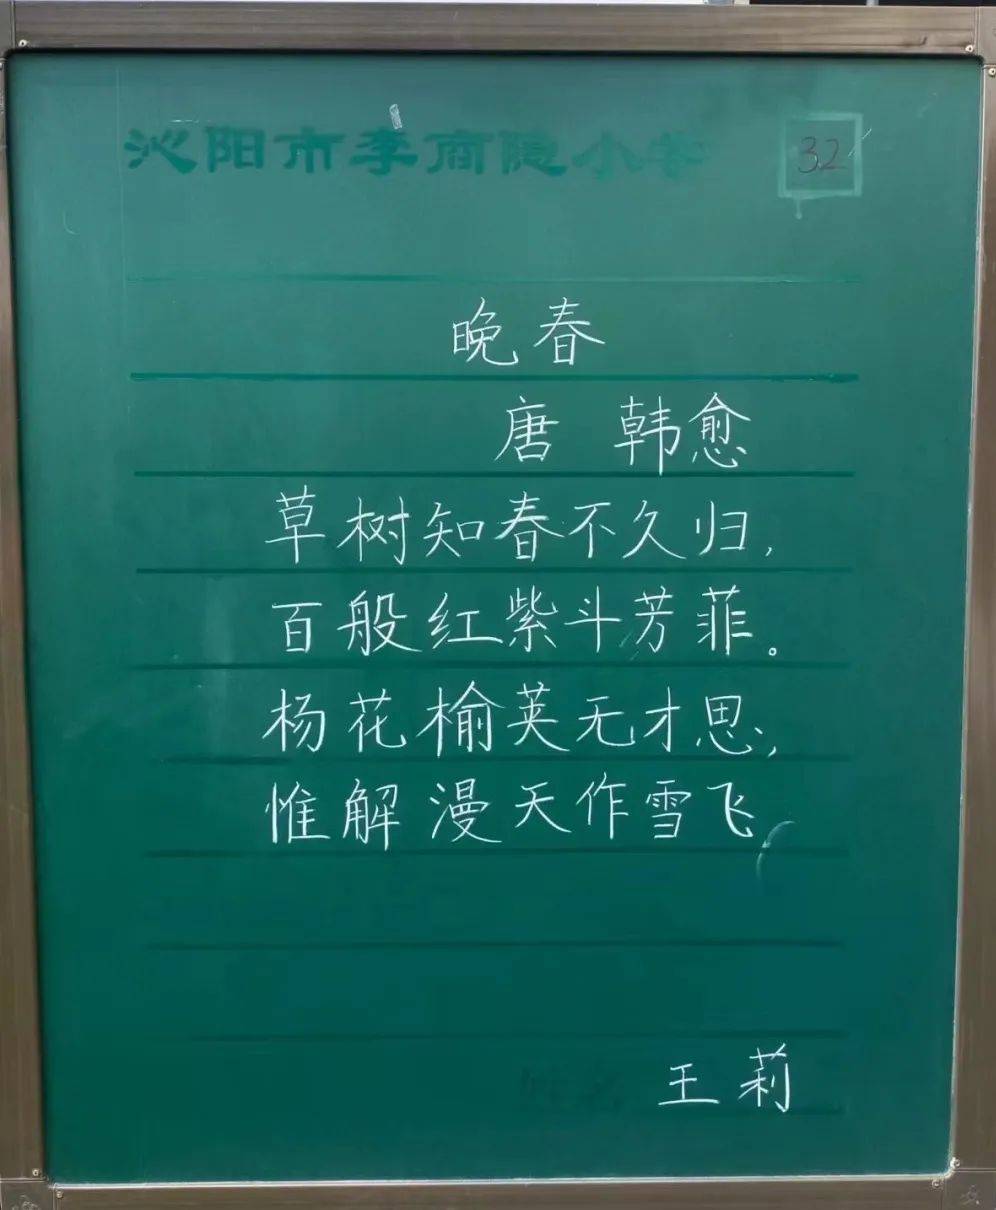 沁阳市李商隐小学 32
晚春
唐 韩愈
草树知春不久归,
百般红紫斗芳菲。
杨花榆荚无才思,
惟解漫天作雪飞
姓名 王莉